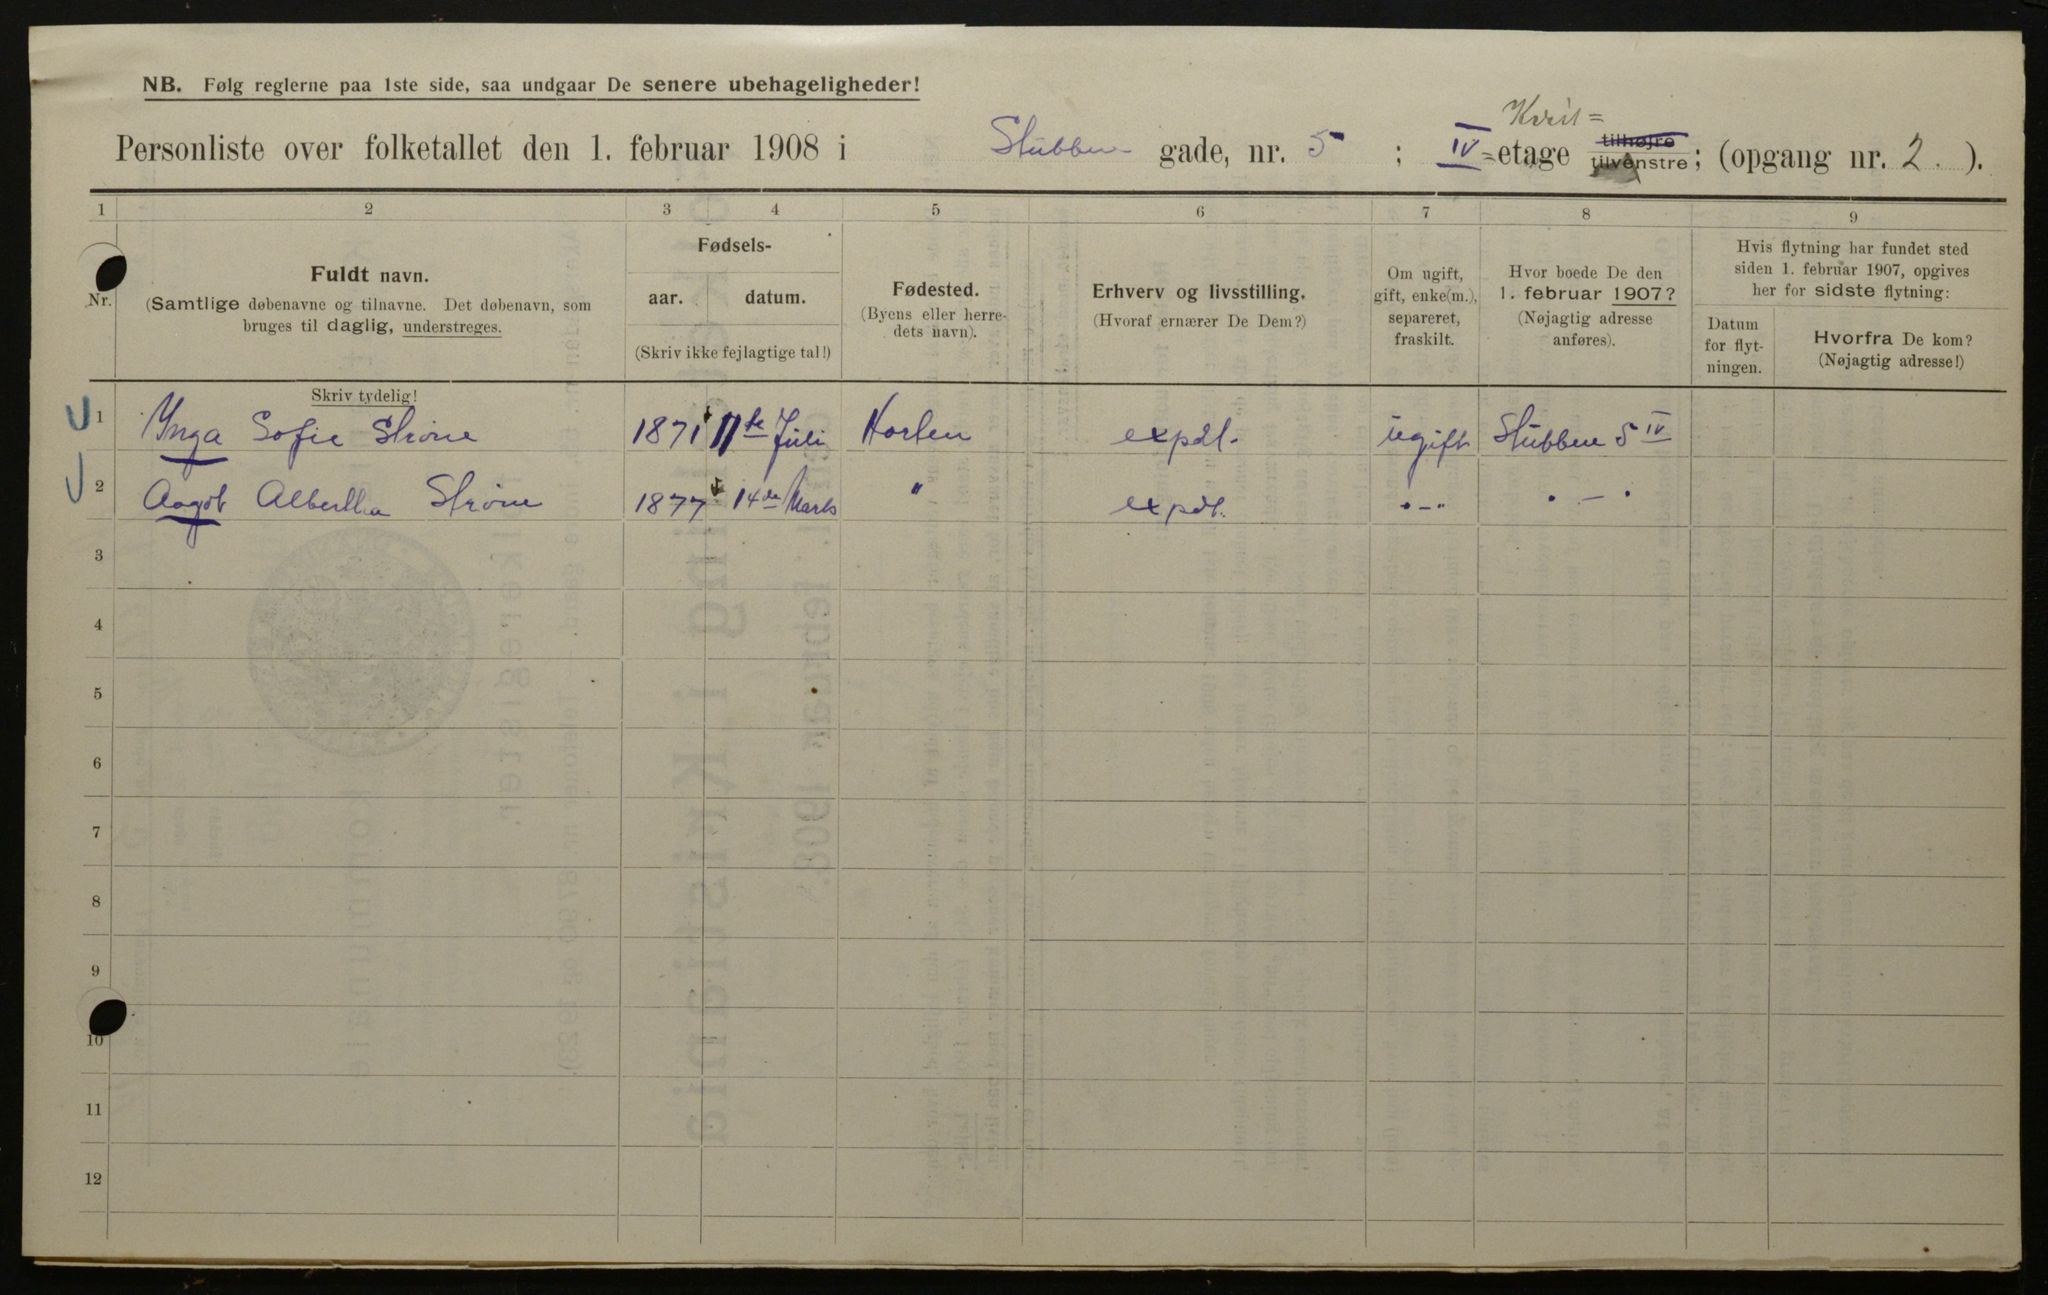 NB. Følg reglerne paa 1ste side, saa undgaar De senere ubehageligheder!
Kvist=
Personliste over folketallet den 1. februar 1908 i Stubben gade, nr. 5; IV=etage tilhøjre tilvenstre; (opgang nr. 2.).
1 2 3 4 5 6 7 8 9
Nr.
Fuldt navn.
(Samtlige døbenavne og tilnavne. Det døbenavn, som
bruges til daglig, understreges.
Skriv tydelig!
Fødsels-
aar. datum.
(Skriv ikke fejlagtige tal!)
Fødested.
(Byens eller herre-
dets navn).
Erhverv og livsstilling.
(Hvoraf ernærer De Dem?)
Om ugift,
gift, enke(m.),
separeret,
fraskilt.
Hvor boede De den
1. februar 1907?
(Nøjagtig adresse
anføres).
Hvis flytning har fundet sted
siden 1. februar 1907, opgives
her for sidste flytning:
Datum
for flyt-
ningen.
Hvorfra De kom?
(Nøjagtig adresse!)
1 Ynga Sofie Strøm 1871 11te Juli Horten expdt. ugift Stubben 5 IV
2 Aagot Albertha Strøm 1877 14de Marts " expdt. "-" "-"
3
4
5
6
7
8
9
10
11
12